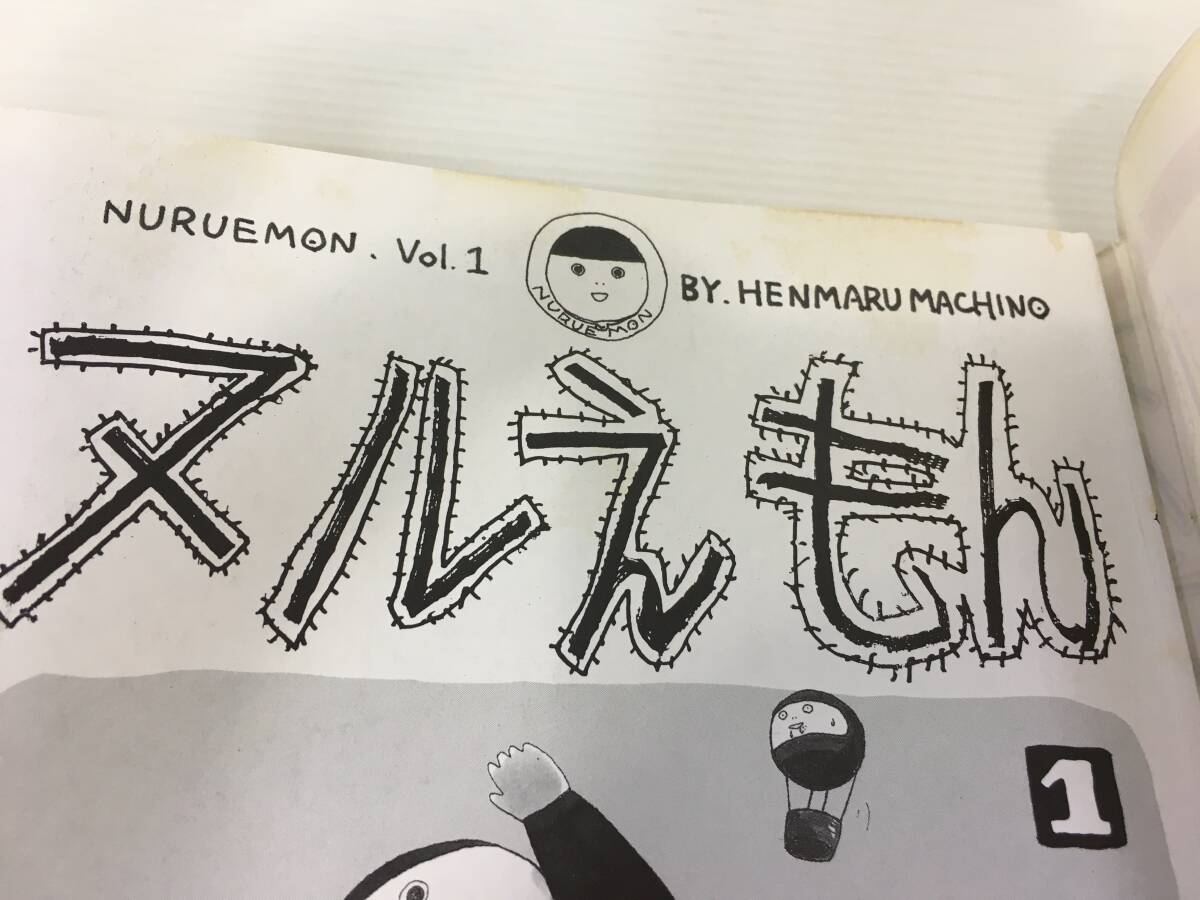 NURUEMON. Vol.1
NURUEMON
BY. HENMARU MACHINO
ヌルえもん
1